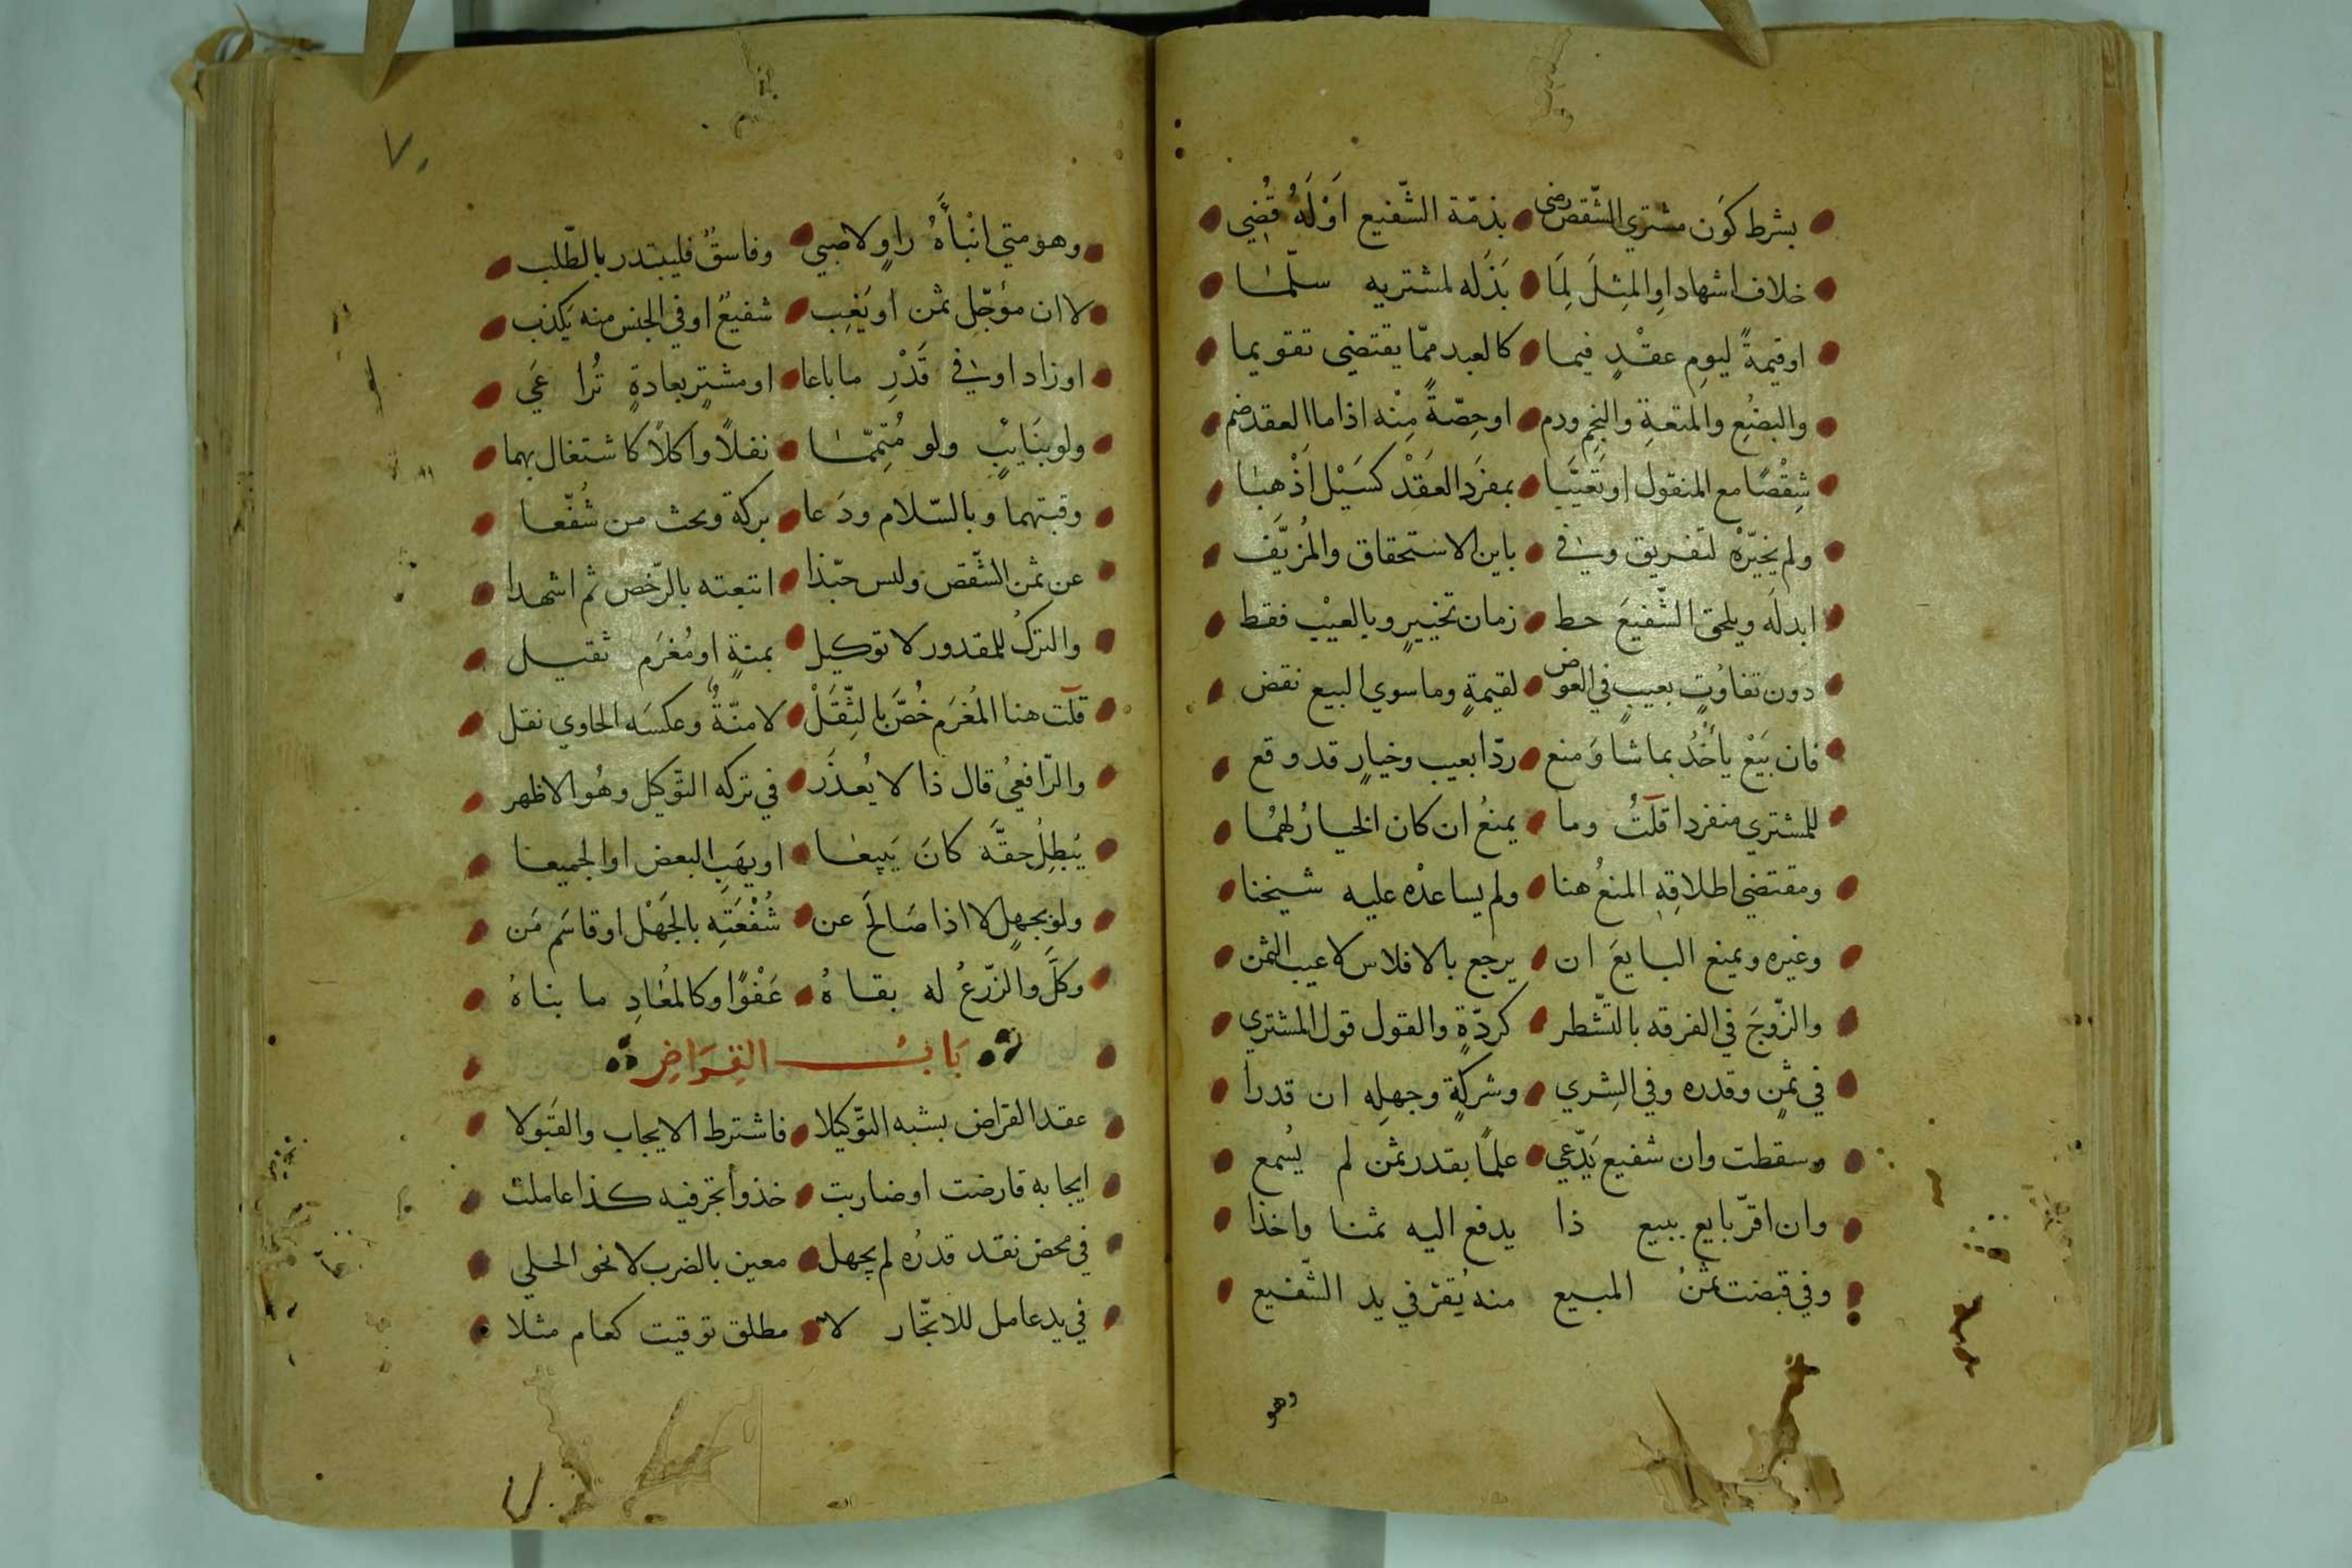 بشرط كَون مشتري الشّقص رضى بذمّة الشّفيع اَوْ لَهُ قُضِي
خلاف اشهاد اوِ المِثلَ لِمَا بَذَله لمشتريه سلّما
او قيمةً ليوم عقْدٍ فيما كالعبد ممّا يقتضي تقويما
والبضُعِ والمتعةِ والنجم ودم او حِصّةً مِنْه اذا ما العقد ضم
شِقْصًا مع المنقول او تَعَيّبَا بمفرَد العَقْد كسَيْل اَذْهبَا
ولم يخيّرْهُ لتفريق وفي باين الاستحقاق والمُزيَّف
ابدلَه ويلحق الشّفيعَ حط زمان تخييرٍ وبالعيْب فقط
دون تفاوُتٍ بعيبٍ في العوض لقيمةٍ وما سوى البيع نقض
فان بَيَعْ يأخُذْ بما شا وَمنع ردّا بعيب وخيارٍ قد وقع
للمشتري منفردا قلتُ وما يمنعُ ان كان الخيارُ لهُما
ومقتضى اطلاقِهِ المنعُ هنا ولم يساعدْه عليه شيخنا
وغيره ويمنع البايعَ ان يرجع بالافلاس لا عيب الثمن
والزّوجَ في الفرقه بالتّشطر كردّةٍ والقول قول المشتري
في ثمنٍ وقدره وفي الشِرى وشركةٍ وجهلِه ان قدرا
وسقطت وان شفيع يَدّعي علمًا بقدر ثمن لم يُسمع
وان اقرّ بايع ببيع ذا يدفع اليه ثمنا واخذا
وفي قبضت ثمنُ المبيع منه يُقرّ في يد الشّفيع
وهو
٧٠
وهو متي انْبأَهُ راوٍ لا صبي وفاسقٌ فليبتدر بالطّلب
لا ان مؤجّل ثمن او يَغِب شفيعٌ او في الجنس منه يَكذب
او زاد او في قَدْرِ ما باعا او مشترٍ بعادةٍ تُراعَي
ولو بنَايبٍ ولو مُتمِّمَا نفلًا واكلًا كاشتغال بهما
وقتهما وبالسّلام ودَعا بركة وبحث من شُفّعا
عن ثمن الشّقص وليس حبّذا اتبعته بالرّخص ثم اشهدا
والتركُ للمقدور لا توكيل بمنةٍ او مُغرَم ثقيل
قلت هنا المُغرَم خُصَّ بالثِّقَلْ لا مِنّةٌ وعكسَه الحاوي نقل
والرّافعيُ قال ذا لا يُعذَر في تركه التّوكيل وهُو الاظهر
يُبطِلُ حقَّه كانَ يَبيعَا او يهَبِ البعض او الجميعا
ولو بجهلٍ لا اذا صَالحَ عن شُفْعَتِه بالجَهْل او قاسَم مَن
وكَّل والزّرعُ له بقاهُ عَفْوًا وكالمُعَادِ ما بناهُ
بَابُ القِرَاضِ
عقد القراض يشبه التّوكيلا فاشترط الايجاب والقَبولا
ايجابه قارضت او ضاربت خذ واتجر فيه كذا عاملت
في محض نقد قدرُه لم يجهل معين بالضرب لا نحو الحلي
في يد عامل للاتّجار لا مطلق توقيت كعام مثلا